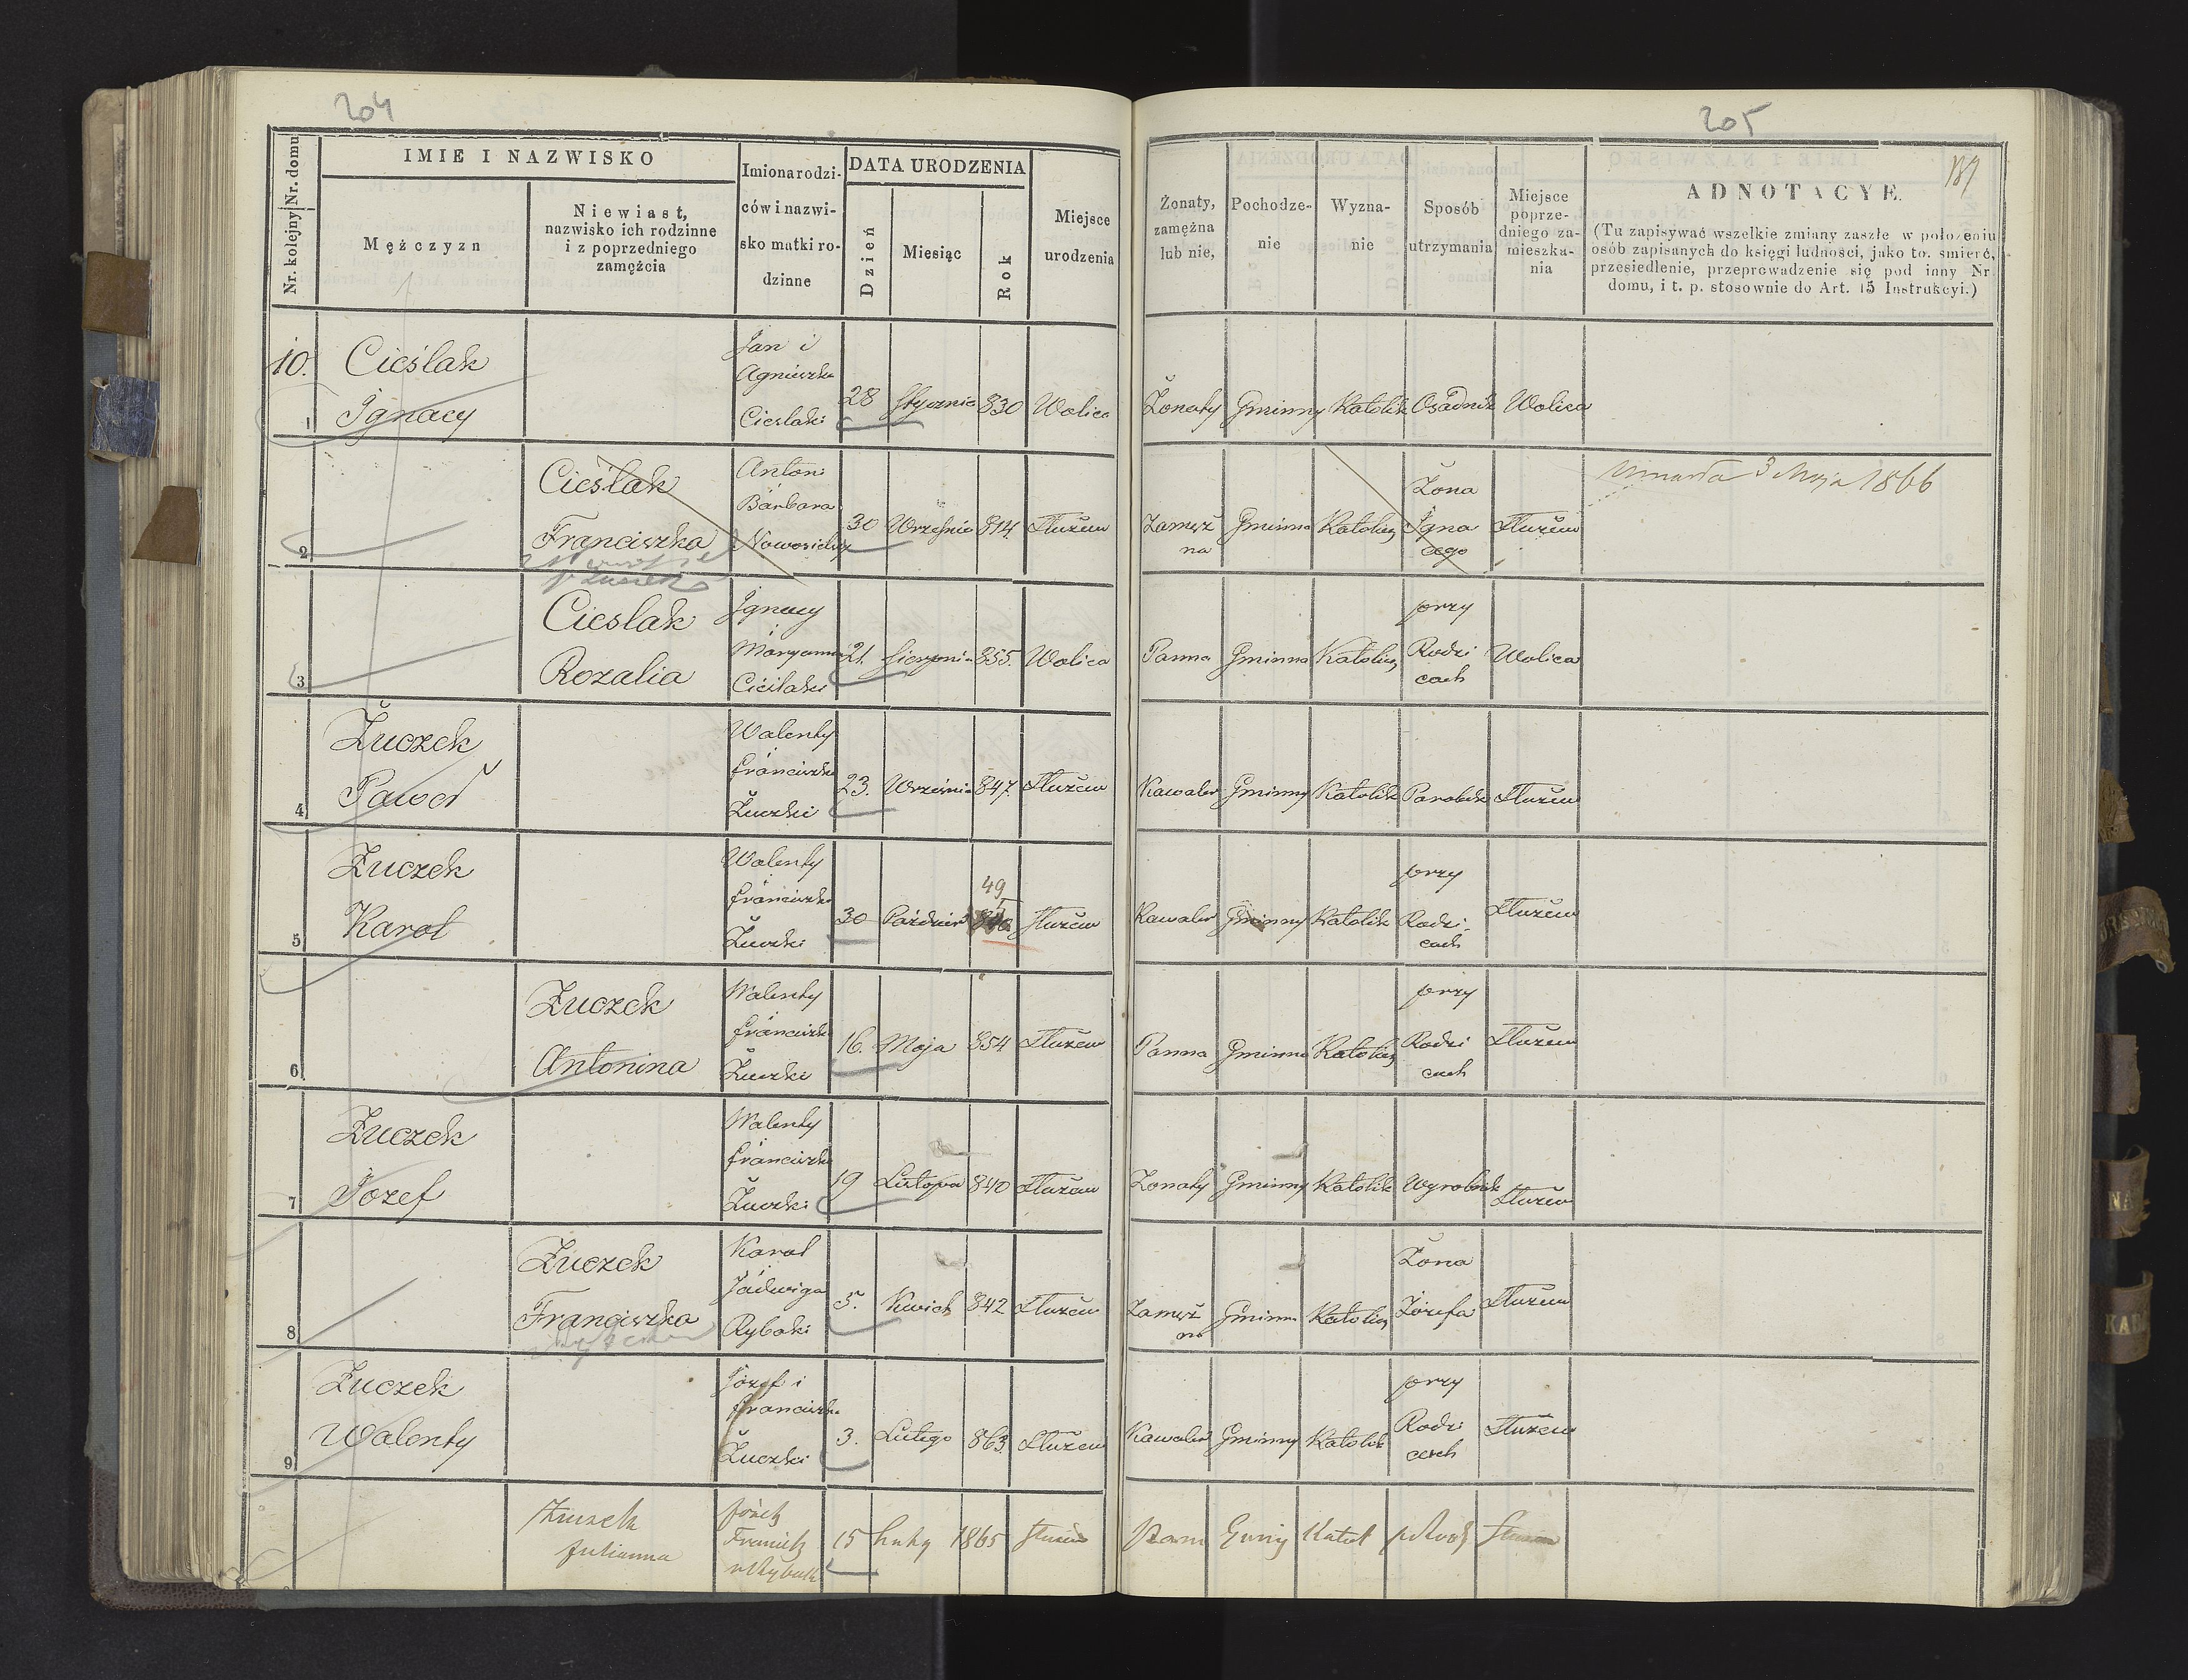 204
Nr. kolejny Nr. domu
IMIE I NAZWISKO
Mężczyzn
Niewiast,
nazwisko ich rodzinne
i z poprzedniego
zamężcia
Imiona rodzi-
ców i nazwi-
sko matki ro-
dzinne
DATA URODZENIA
Dzień
Miesiąc
Rok
Miejsce
urodzenia
10.
1
Cieślak
Ignacy
Jan i
Agnieszka
Cieslaki
28
Stycznia
830
Wolica
2
Cieślak
Franciszka
Antoni
Barbara
30
Września
814
3
Cieslak
Rozalia
Ignacy
i
Maryanna
Cieślaki
21.
Sierpnia
855.
Wolica
4
Żuczek
Paweł
Walenty
Franciszka
Żuczki
23.
Wrześnie
847.
5
Żuczek
Karol
Walenty
Franciszka
Żuczki
30
Paździer
49
6
Żuczek
Antonina
Walenty
Franciszka
Żuczki
16.
Maja
854
7
Żuczek
Jozef
Walenty
Franciszka
Żuczki
19
Listopa
840
8
Żuczek
Franciszka
Karol
Jadwiga
Rybaki
5.
Kwiet
842
9
Żuczek
Walenty
Józef i
Franciszka
Żuczki
3.
Lutego
863.
Julianna
15
1865
205
189
Żonaty,
zamężna
lub nie,
Pochodze-
nie
Wyzna-
nie
Sposób
utrzymania
Miejsce
poprze-
dniego za-
mieszka-
nia
ADNOTACYE.
(Tu zapisywać wszelkie zmiany zaszłe w położeniu
osób zapisanych do księgi ludności, jako to. śmierć,
przesiedlenie, przeprowadzenie się pod inny Nr
domu, i t. p. stosownie do Art. 15 Instrukcyi.)
Żonaty
Gminny
Katolik
Osadnik
Wolica
Zamęż
na
Gminna
Katolicz
Żona
Igna
cego
Umarła 3 Maja 1866
Panna
Gminna
Katolicz
przy
Rodzi
cach
Wolica
Kawaler
Gminny
Katolik
Parobek
Kawaler
Gminny
Katolik
przy
Rodzi-
cach
Panna
Gminna
Katolicz
przy
Rodzi
cach
Zonaty
Gminny
Katolik
Wyrobnik
Zamęż
na
Gminna
Katolicz
Żona
Józefa
Kawaler
Gminny
Katolik
przy
Rodzi
cach